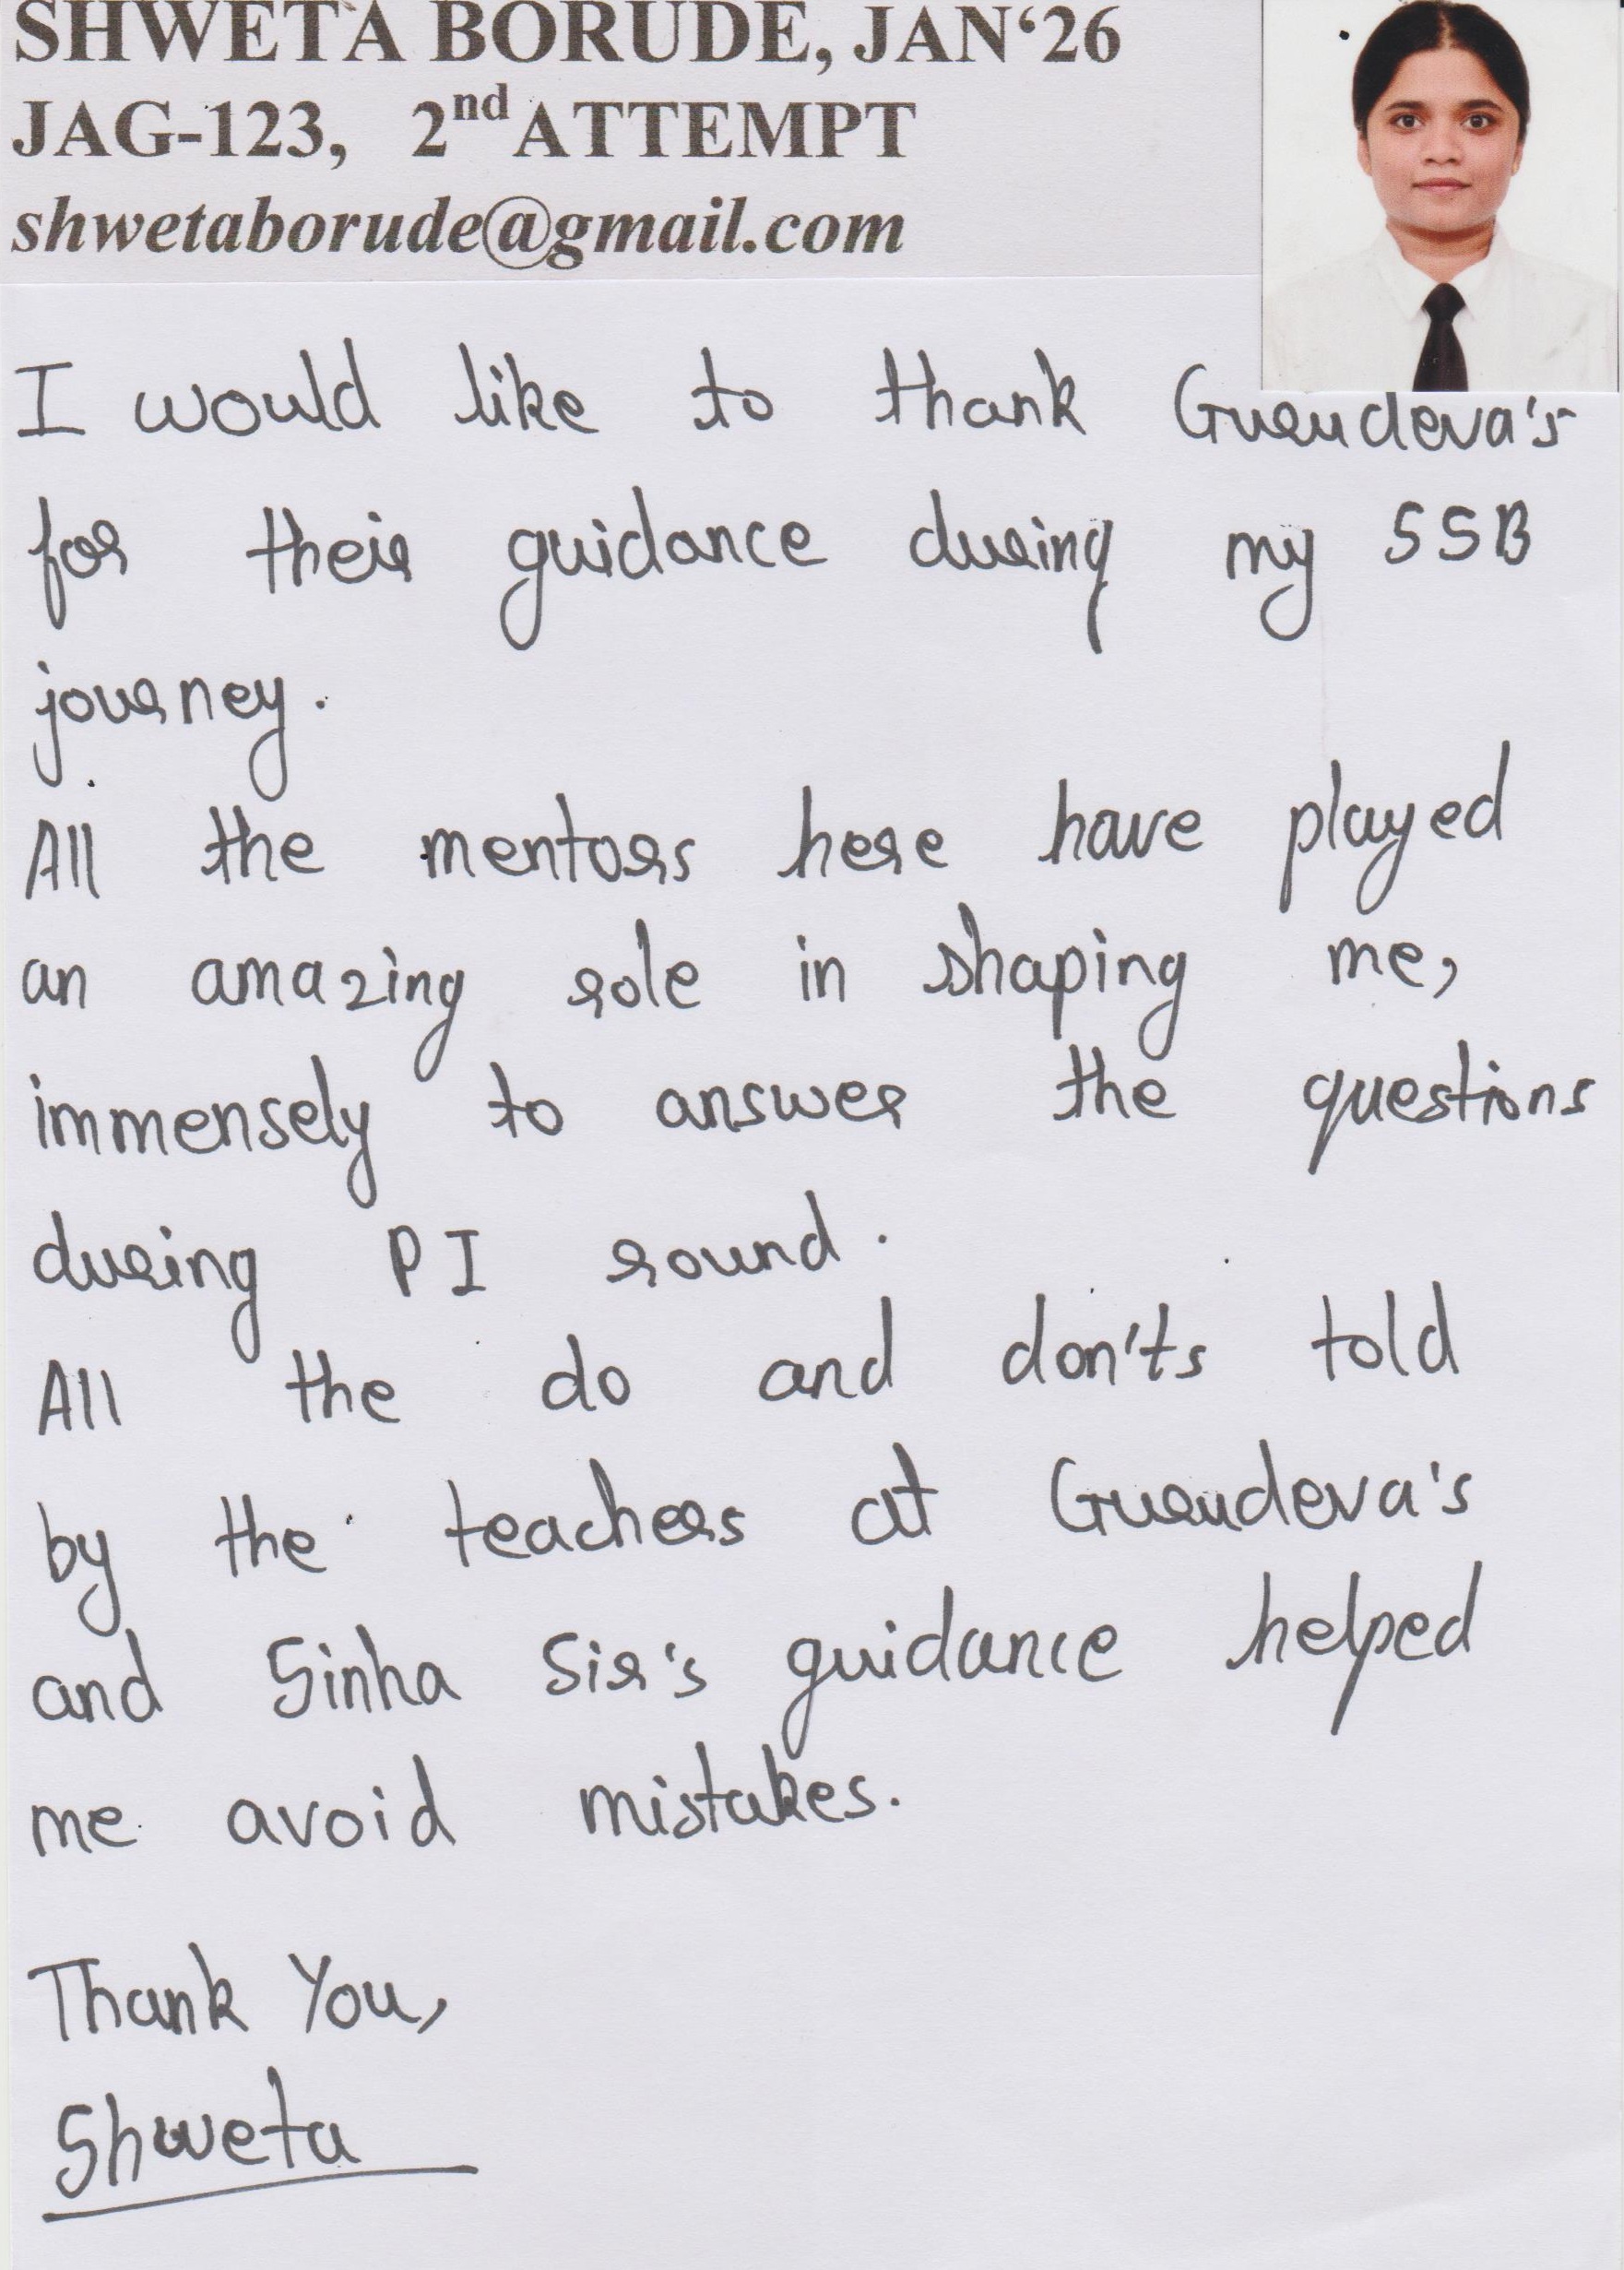 SHWETA BORUDE, JAN‘26
JAG-123, 2nd ATTEMPT
shwetaborude@gmail.com
I would like to thank Gurudeva's
for their guidance during my SSB
journey.
All the mentors here have played
an amazing role in shaping me,
immensely to answer the questions
during PI round.
All the do and don'ts told
by the teachers at Gurudeva's
and Sinha Sir's guidance helped
me avoid mistakes.
Thank You,
Shweta